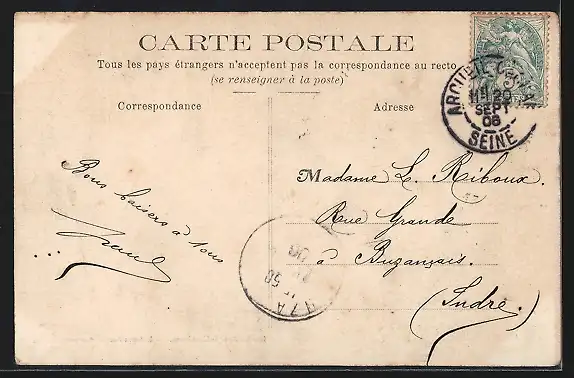 CARTE POSTALE
Tous les pays étrangers n'acceptent pas la correspondance au recto
(se renseigner à la poste)
Correspondance
Adresse
ARCUEIL-C
20
SEPT
08
SEINE
Bons baisers à tous
Madame L. Riboux.
Rue Grande
à Buzançais.
(Indre)